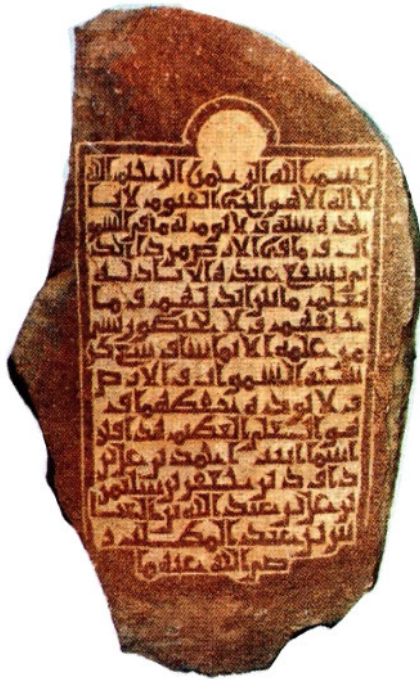 بسم الله الرحمن الرحيم الله
لا اله الا هو الحي القيوم لا تا
خذه سنة ولا نوم له ما في السمو
ات وما في الارض من ذا الذ
ي يشفع عنده الا باذنه
يعلم ما بين ايديهم وما
خلفهم ولا يحيطون بشي
من علمه الا بما شا وسع كر
سيه السموات والارض
ولا يوده حفظهما و
هو العلي العظيم هذا قبر
اسما ابنت احمد بن علي بن
داود بن جعفر بن سليمن
بن علي بن عبد الله بن العبا
س بن عبد المطلب ر
ضي الله عنهما